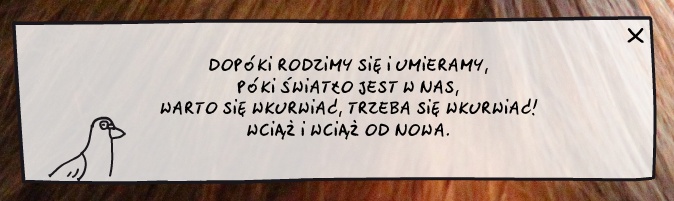 DOPÓKI RODZIMY SIĘ I UMIERAMY,
PÓKI ŚWIATŁO JEST W NAS,
WARTO SIĘ WKURWIAĆ, TRZEBA SIĘ WKURWIAĆ!
WCIĄŻ I WCIĄŻ OD NOWA.